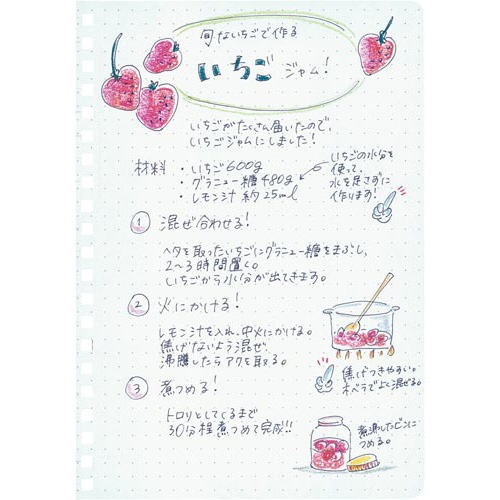 旬ないちごで作る
いちごジャム!
いちごがたくさん届いたので、
いちごジャムにしました!
材料 ・いちご600g
・グラニュー糖480g
・レモン汁 約25ml
いちごの水分を
使って、
水を足さずに
作ります!
① 混ぜ合わせる!
ヘタを取ったいちごにグラニュー糖をまぶし、
2〜3時間置く。
いちごから水分が出てきます。
② 火にかける!
レモン汁を入れ、中火にかける。
焦げないよう混ぜ、
沸騰したらアクを取る。
焦げつきやすい。
木ベラでよく混ぜる。
③ 煮つめる!
トロリとしてくるまで
30分程煮つめて完成!!
煮沸したビンに
つめる。